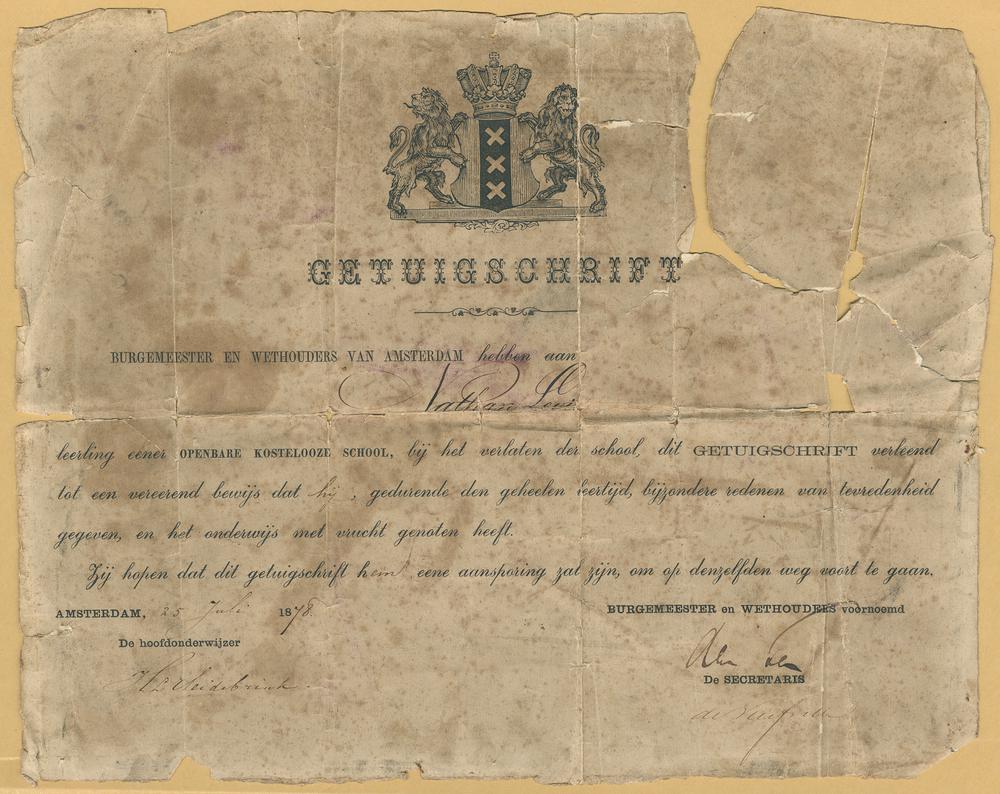 GETUIGSCHRIFT
BURGEMEESTER EN WETHOUDERS VAN AMSTERDAM hebben aan
Nathan Levi
leerling eener OPENBARE KOSTELOOZE SCHOOL, bij het verlaten der school, dit GETUIGSCHRIFT verleend
tot een vereerend bewijs dat hij, gedurende den geheelen leertijd, bijzondere redenen van tevredenheid
gegeven, en het onderwijs met vrucht genoten heeft.
Zij hopen dat dit getuigschrift hem eene aansporing zal zijn, om op denzelfden weg voort te gaan.
AMSTERDAM, 25 Juli 1878.
BURGEMEESTER en WETHOUDERS voornoemd
De hoofdonderwijzer
De SECRETARIS